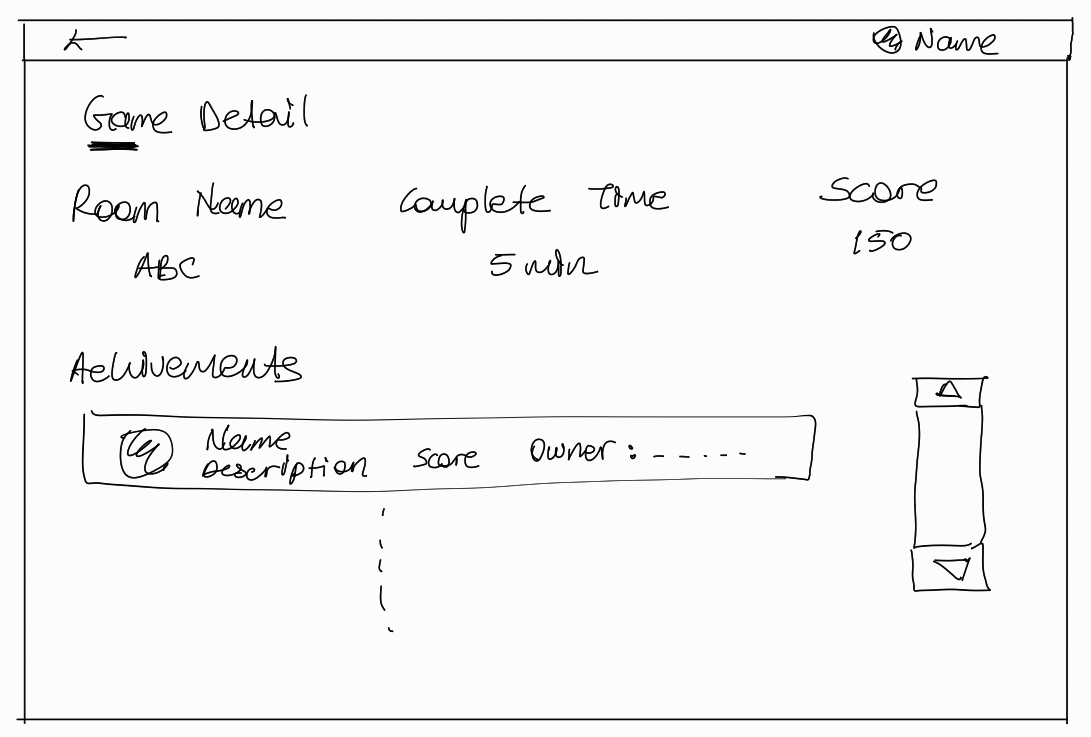 Name
Game Detail
Room Name Complete Time Score
ABC 5 min 150
Achivements
Name
Description Score Owner : - - - - -